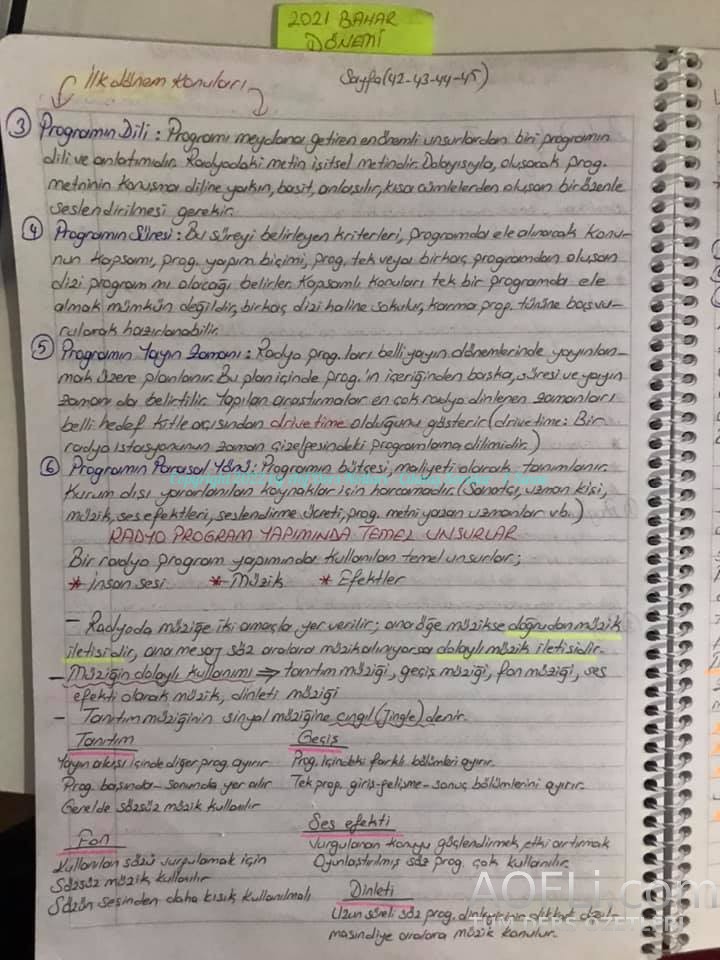 2021 BAHAR
DÖNEMİ
İlk dönem konuları
Sayfa(42-43-44-45)
③ Programın Dili: Programı meydana getiren en önemli unsurlardan biri programın
dili ve anlatımıdır. Radyodaki metin işitsel metindir. Dolayısıyla, oluşacak prog.
metninin konuşma diline yakın, basit, anlaşılır, kısa cümlelerden oluşan bir özenle
seslendirilmesi gerekir.
④ Programın Süresi: Bu süreyi belirleyen kriterleri, programda ele alınacak konu-
nun kapsamı, prog. yapım biçimi, prog. tek veya birkaç programdan oluşan
dizi program mı olacağı belirler. Kapsamlı konuları tek bir programda ele
almak mümkün değildir, birkaç dizi haline sokulur, karma prog. türüne başvu-
rularak hazırlanabilir.
⑤ Programın Yayın Zamanı: Radyo prog.ları belli yayın dönemlerinde yayınlan-
mak üzere planlanır. Bu plan içinde prog.'ın içeriğinden başka, süresi ve yayın
zamanı da belirtilir. Yapılan araştırmalar en çok radyo dinlenen zamanları
belli hedef kitle açısından drive time olduğunu gösterir (drive time: Bir
radyo istasyonunun zaman çizelgesindeki programlama dilimidir.)
⑥ Programın Parasal Yönü: Programın bütçesi, maliyeti olarak tanımlanır.
Kurum dışı yararlanılan kaynaklar için harcamadır. (Sanatçı, uzman kişi,
müzik, ses efektleri, seslendirme ücreti, prog. metni yazan uzmanlar vb.)
RADYO PROGRAM YAPIMINDA TEMEL UNSURLAR
Bir radyo program yapımında kullanılan temel unsurlar;
* İnsan sesi * Müzik * Efektler
- Radyoda müziğe iki amaçla yer verilir; ana öğe müzikse doğrudan müzik
iletisidir, ana mesaj söz aralara müzik alınıyorsa dolaylı müzik iletisidir.
- Müziğin dolaylı kullanımı ⇒ tanıtım müziği, geçiş müziği, fon müziği, ses
efekti olarak müzik, dinleti müziği
- Tanıtım müziğinin sinyal müziğine cıngıl (Jingle) denir.
Tanıtım
Yayın akışı içinde diğer prog. ayırır
Prog. başında-sonunda yer alır
Genelde sözsüz müzik kullanılır
Geçiş
Prog. içindeki farklı bölümleri ayırır.
Tek prog. giriş-gelişme-sonuç bölümlerini ayırır.
Fon
Kullanılan sözü vurgulamak için
Sözsüz müzik kullanılır
Sözün sesinden daha kısık kullanılmalı
Ses efekti
Vurgulanan konuyu güçlendirmek, etki artırmak
Oyunlaştırılmış söz prog. çok kullanılır.
Dinleti
Uzun süreli söz prog. dinleyicinin dikkati dağıl-
masın diye aralara müzik konulur.
AOFLi.com
TÜM DERS ÖZETLERİ